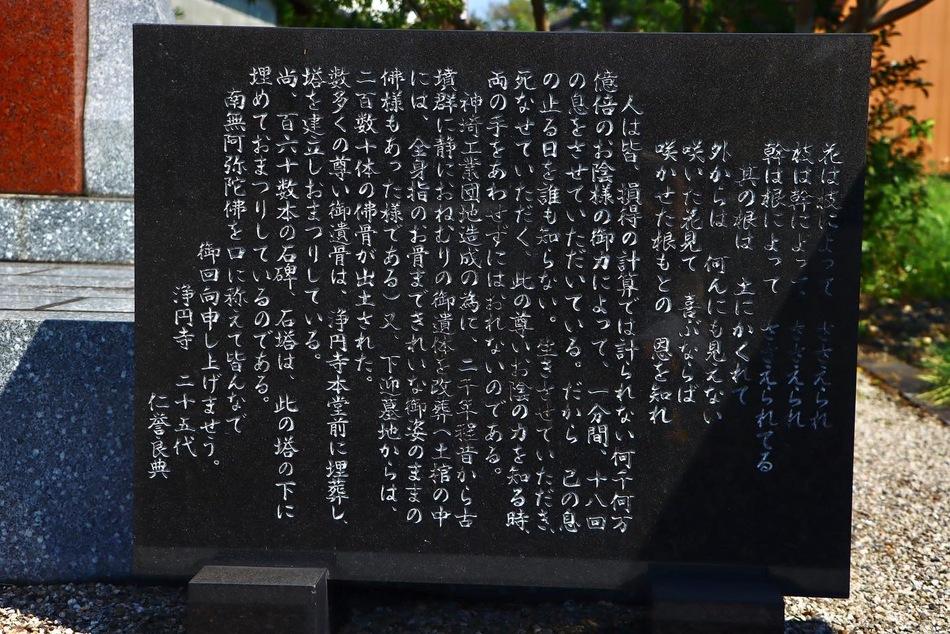 花は枝によって ささえられ
枝は幹によって ささえられ
幹は根によって ささえられてる
其の根は 土にかくれて
外からは 何んにも見えない
咲いた花見て 喜ぶならば
咲かせた根もとの 恩を知れ
人は皆、損得の計算では計られない何千何万
億倍のお陰様の御力によって、一分間、十八回
の息をさせていただいている。だから 己の息
の止る日を誰も知らない。生きさせていただき、
死なせていただく、此の尊いお陰の力を知る時、
両の手をあわせずにはおれないのである。
神埼工業団地造成の為に、二千年程昔から古
墳群に静におねむりの御遺体を改葬（土棺の中
には、全身指のお骨まできれいな御姿のままの
佛様もあった様である）又、下迎墓地からは、
二百数十体の佛骨が出土された。
数多くの尊い御遺骨は、浄円寺本堂前に埋葬し、
塔を建立しおまつりしている。
尚、百六十数本の石碑、石塔は、此の塔の下に
埋めておまつりしているのである。
南無阿弥陀佛を口に称えて皆んなで
御回向申し上げませう。
浄円寺 二十五代
仁誉良典